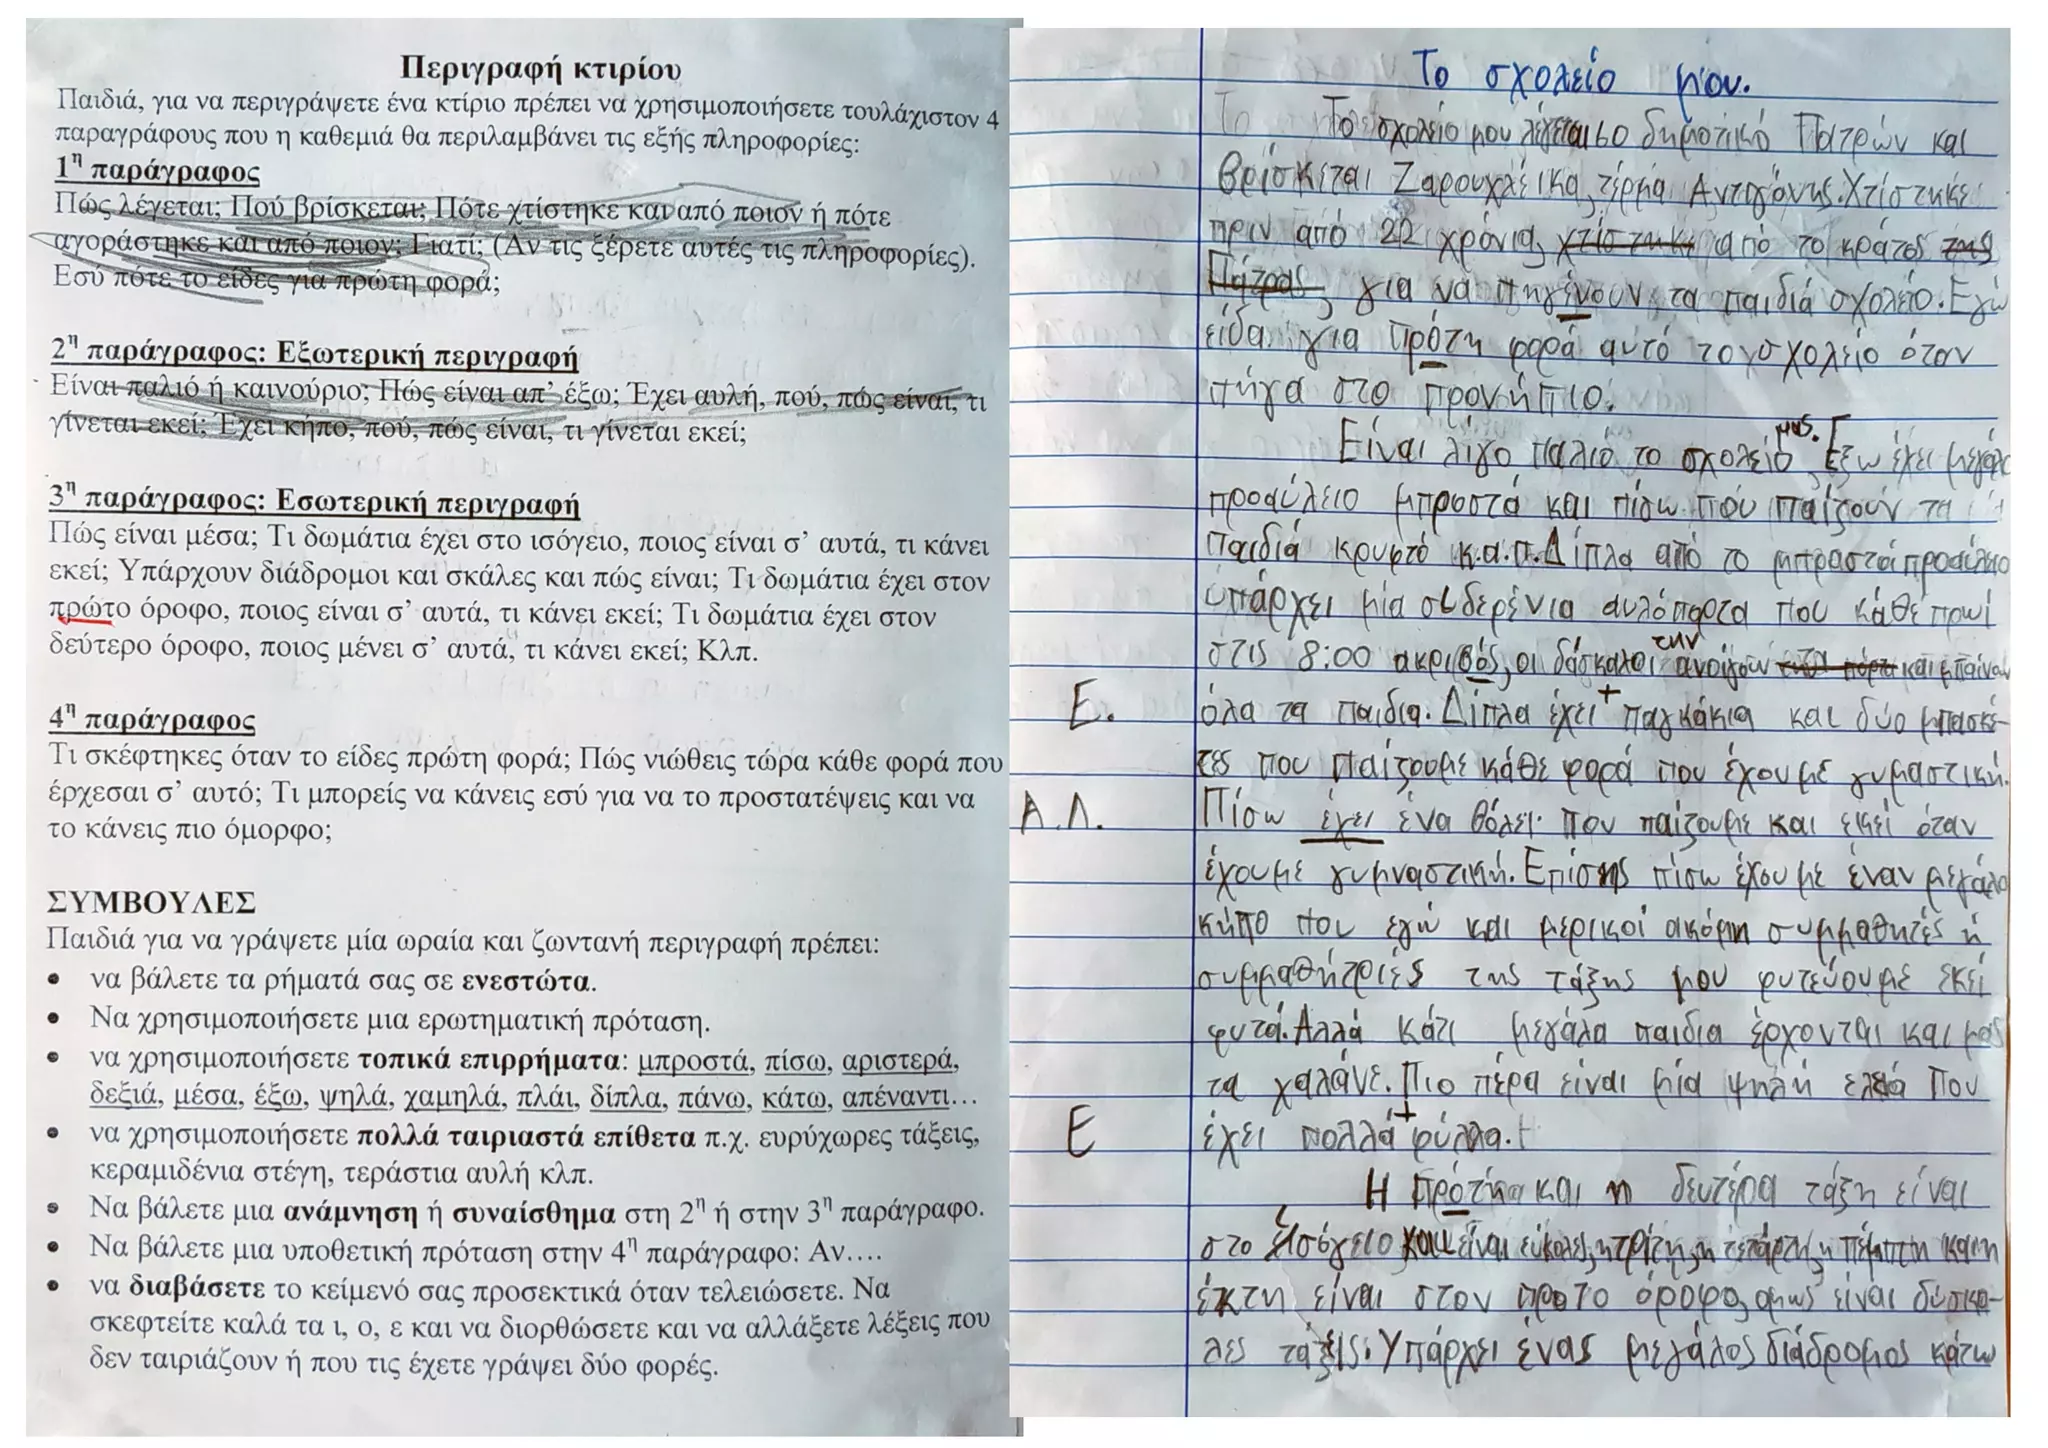 Περιγραφή κτιρίου
Παιδιά, για να περιγράψετε ένα κτίριο πρέπει να χρησιμοποιήσετε τουλάχιστον 4
παραγράφους που η καθεμιά θα περιλαμβάνει τις εξής πληροφορίες:
1η παράγραφος
Πώς λέγεται; Πού βρίσκεται; Πότε χτίστηκε και από ποιον ή πότε
αγοράστηκε και από ποιον; Γιατί; (Αν τις ξέρετε αυτές τις πληροφορίες).
Εσύ πότε το είδες για πρώτη φορά;
2η παράγραφος: Εξωτερική περιγραφή
Είναι παλιό ή καινούριο; Πώς είναι απ’ έξω; Έχει αυλή, πού, πώς είναι, τι
γίνεται εκεί; Έχει κήπο, πού, πώς είναι, τι γίνεται εκεί;
3η παράγραφος: Εσωτερική περιγραφή
Πώς είναι μέσα; Τι δωμάτια έχει στο ισόγειο, ποιος είναι σ’ αυτά, τι κάνει
εκεί; Υπάρχουν διάδρομοι και σκάλες και πώς είναι; Τι δωμάτια έχει στον
πρώτο όροφο, ποιος είναι σ’ αυτά, τι κάνει εκεί; Τι δωμάτια έχει στον
δεύτερο όροφο, ποιος μένει σ’ αυτά, τι κάνει εκεί; Κλπ.
4η παράγραφος
Τι σκέφτηκες όταν το είδες πρώτη φορά; Πώς νιώθεις τώρα κάθε φορά που
έρχεσαι σ’ αυτό; Τι μπορείς να κάνεις εσύ για να το προστατέψεις και να
το κάνεις πιο όμορφο;
ΣΥΜΒΟΥΛΕΣ
Παιδιά για να γράψετε μία ωραία και ζωντανή περιγραφή πρέπει:
• να βάλετε τα ρήματά σας σε ενεστώτα.
• Να χρησιμοποιήσετε μια ερωτηματική πρόταση.
• να χρησιμοποιήσετε τοπικά επιρρήματα: μπροστά, πίσω, αριστερά,
δεξιά, μέσα, έξω, ψηλά, χαμηλά, πλάι, δίπλα, πάνω, κάτω, απέναντι…
• να χρησιμοποιήσετε πολλά ταιριαστά επίθετα π.χ. ευρύχωρες τάξεις,
κεραμιδένια στέγη, τεράστια αυλή κλπ.
• Να βάλετε μια ανάμνηση ή συναίσθημα στη 2η ή στην 3η παράγραφο.
• Να βάλετε μια υποθετική πρόταση στην 4η παράγραφο: Αν….
• να διαβάσετε το κείμενό σας προσεκτικά όταν τελειώσετε. Να
σκεφτείτε καλά τα ι, ο, ε και να διορθώσετε και να αλλάξετε λέξεις που
δεν ταιριάζουν ή που τις έχετε γράψει δύο φορές.
Το σχολείο μου.
Το Το σχολείο μου λέγεται 60 δημοτικό Πατρών και
βρίσκεται Ζαρουχλέικα, τέρμα Αντιγόνης. Χτίστηκε
πριν από 22 χρόνια, χτίστηκε από το κράτος της
Πάτρας, για να πηγένουν τα παιδιά σχολείο. Εγώ
είδα για πρότη φορά αυτό το σχολείο όταν
πήγα στο προνήπιο.
Είναι λίγο παλιό το σχολείο μας. Έξω έχει μεγάλο
προαύλειο μπροστά και πίσω που παίζουν τα
παιδιά κρυφτό κ.α.π. Δίπλα από το μπραστά προαύλειο
υπάρχει μία σιδερένια αυλόπορτα που κάθε πρωί
στις 8:00 ακριβός, οι δάσκαλοι την ανοίγουν την πόρτα και μπαίνουν
Ε. όλα τα παιδια. Δίπλα έχει + παγκάκια και δύο μπασκέ-
τες που παίζουμε κάθε φορά που έχουμε γυμαστική.
Α.Λ. Πίσω έχει ένα βόλεϊ που παίζουμε και εκεί όταν
έχουμε γυμναστική. Επίσης πίσω έχουμε έναν μεγάλο
κήπο που εγώ και μερικοί ακόμη συμμαθητές ή
συμμαθήτριές της τάξης μου φυτεύουμε εκεί
φυτά. Αλλά κάτι μεγάλα παιδια έρχονται και μας
τα χαλάνε. Πιο πέρα είναι μία ψηλή ελιά που
Ε έχει πολλά + φύλλα.
Η πρότη και η δευτέρα τάξη είναι
στο ισόγειο και είναι εύκολες, η τρίτη, η τετάρτη, η πέμπτη και η
έκτη είναι στον προτο όροφο, όμως είναι δύσκο-
λες τάξεις. Υπάρχει ένας μεγάλος διάδρομος κάτω